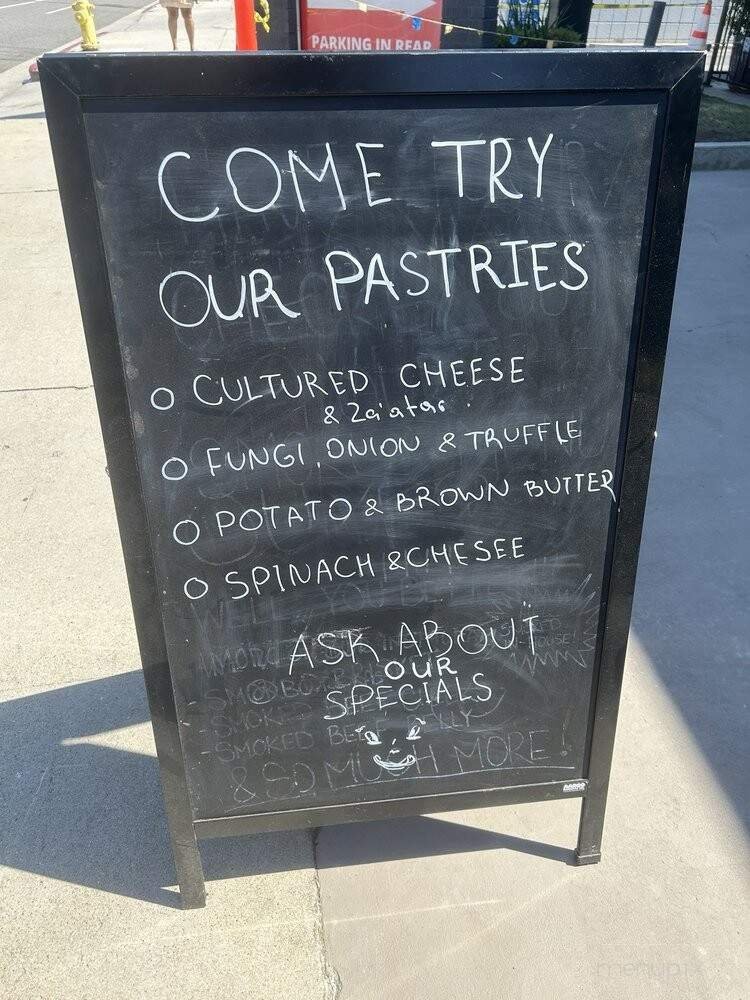 PARKING IN REAR
COME TRY
OUR PASTRIES
O CULTURED CHEESE
& Za'atar.
O FUNGI, ONION & TRUFFLE
O POTATO & BROWN BUTTER
O SPINACH & CHESEE
ASK ABOUT
OUR
SPECIALS
SMOKED BEEF BELLY
& SO MUCH MORE!
menupix